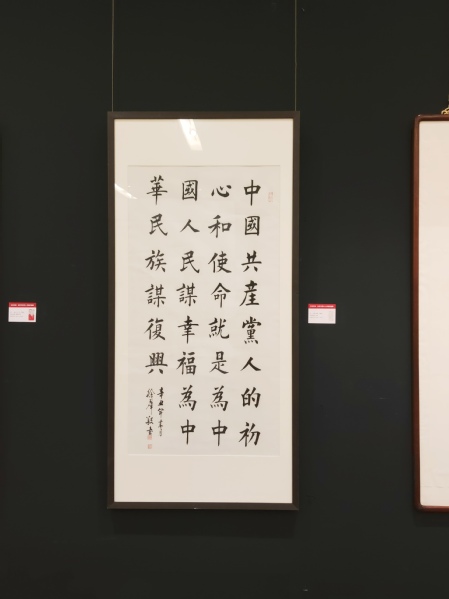 中國共產黨人的初
心和使命就是為中
國人民謀幸福為中
華民族謀復興
辛丑